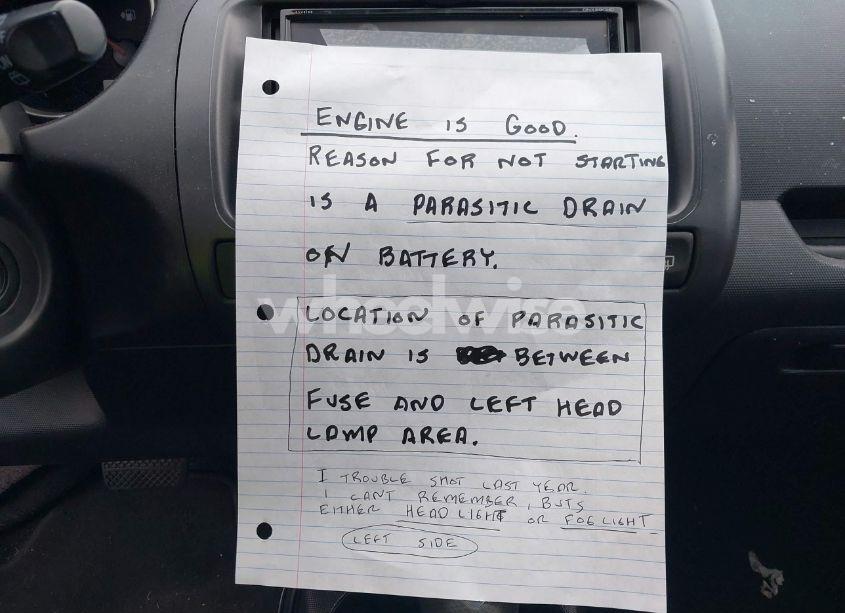 ENGINE IS GOOD.
REASON FOR NOT STARTING
IS A PARASITIC DRAIN
ON BATTERY.
wheelwise
LOCATION OF PARASITIC
DRAIN IS BETWEEN
FUSE AND LEFT HEAD
LAMP AREA.
I TROUBLE SHOT LAST YEAR.
I CANT REMEMBER, BUTS
EITHER HEADLIGHT OR FOGLIGHT
LEFT SIDE